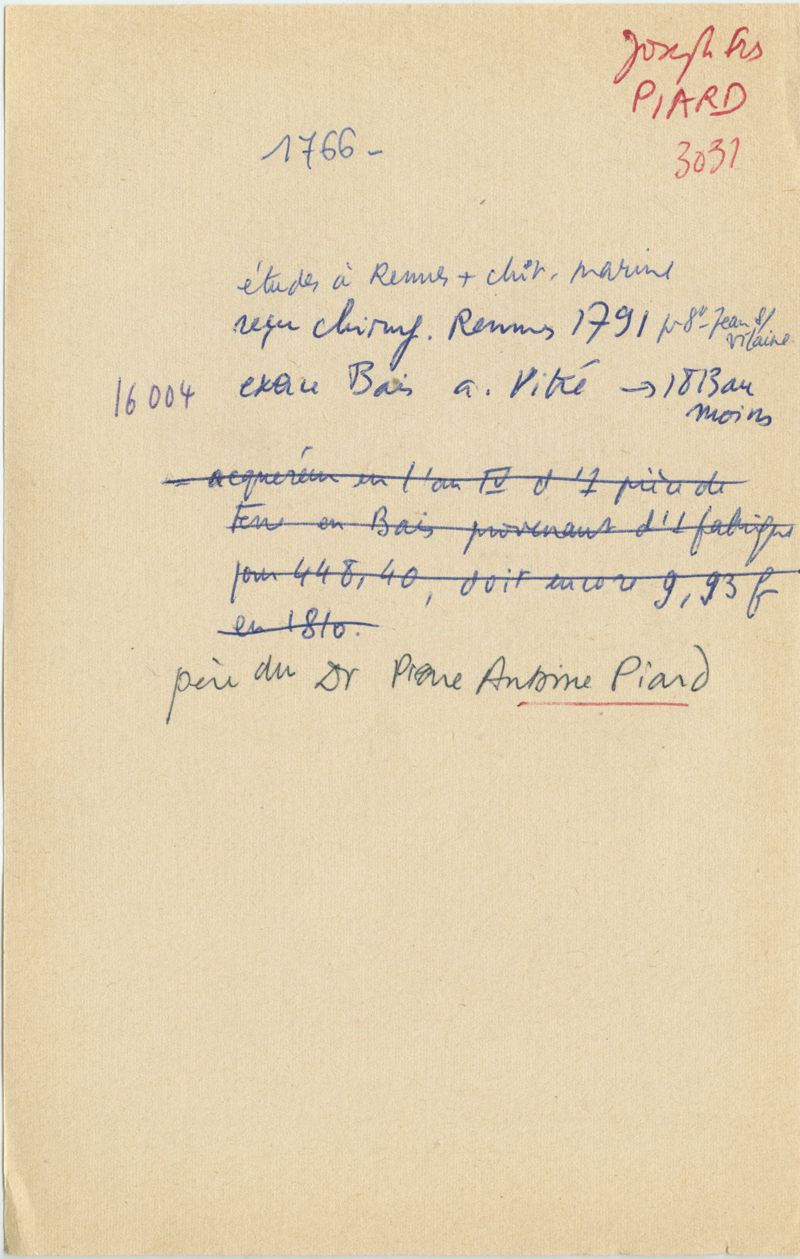 Joseph Frs
PIARD
3031
1766 -
études à Rennes + chir. marine
reçu chirurg. Rennes 1791 pr St-Jean s/
vilaine
16 004 exerce Bais a. Vitré → 1813 au
moins
= acquéreur en l'an IV d'1 pièce de
terre en Bais provenant d'1 fabrique
pour 448,40, doit encore 9,93 f
en 1810.
père du Dr Pierre Antoine Piard